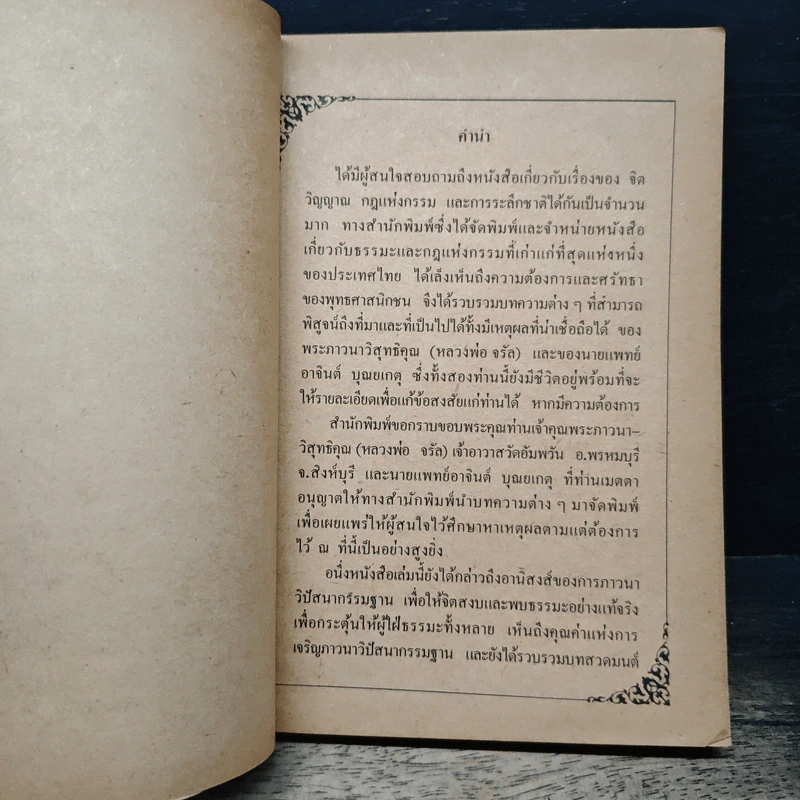 คำนำ
ได้มีผู้สนใจสอบถามถึงหนังสือเกี่ยวกับเรื่องของ จิต
วิญญาณ กฎแห่งกรรม และการระลึกชาติได้กันเป็นจำนวน
มาก ทางสำนักพิมพ์ซึ่งได้จัดพิมพ์และจำหน่ายหนังสือ
เกี่ยวกับธรรมะและกฎแห่งกรรมที่เก่าแก่ที่สุดแห่งหนึ่ง
ของประเทศไทย ได้เล็งเห็นถึงความต้องการและศรัทธา
ของพุทธศาสนิกชน จึงได้รวบรวมบทความต่าง ๆ ที่สามารถ
พิสูจน์ถึงที่มาและที่เป็นไปได้ทั้งมีเหตุผลที่น่าเชื่อถือได้ ของ
พระภาวนาวิสุทธิคุณ (หลวงพ่อ จรัล) และของนายแพทย์
อาจินต์ บุณยเกตุ ซึ่งทั้งสองท่านนี้ยังมีชีวิตอยู่พร้อมที่จะ
ให้รายละเอียดเพื่อแก้ข้อสงสัยแก่ท่านได้ หากมีความต้องการ
สำนักพิมพ์ขอกราบขอบพระคุณท่านเจ้าคุณพระภาวนา–
วิสุทธิคุณ (หลวงพ่อ จรัล) เจ้าอาวาสวัดอัมพวัน อ.พรหมบุรี
จ.สิงห์บุรี และนายแพทย์อาจินต์ บุณยเกตุ ที่ท่านเมตตา
อนุญาตให้ทางสำนักพิมพ์นำบทความต่าง ๆ มาจัดพิมพ์
เพื่อเผยแพร่ให้ผู้สนใจไว้ศึกษาหาเหตุผลตามแต่ต้องการ
ไว้ ณ ที่นี้เป็นอย่างสูงยิ่ง
อนึ่งหนังสือเล่มนี้ยังได้กล่าวถึงอานิสงส์ของการภาวนา
วิปัสนากรรมฐาน เพื่อให้จิตสงบและพบธรรมะอย่างแท้จริง
เพื่อกระตุ้นให้ผู้ใฝ่ธรรมะทั้งหลาย เห็นถึงคุณค่าแห่งการ
เจริญภาวนาวิปัสนากรรมฐาน และยังได้รวบรวมบทสวดมนต์